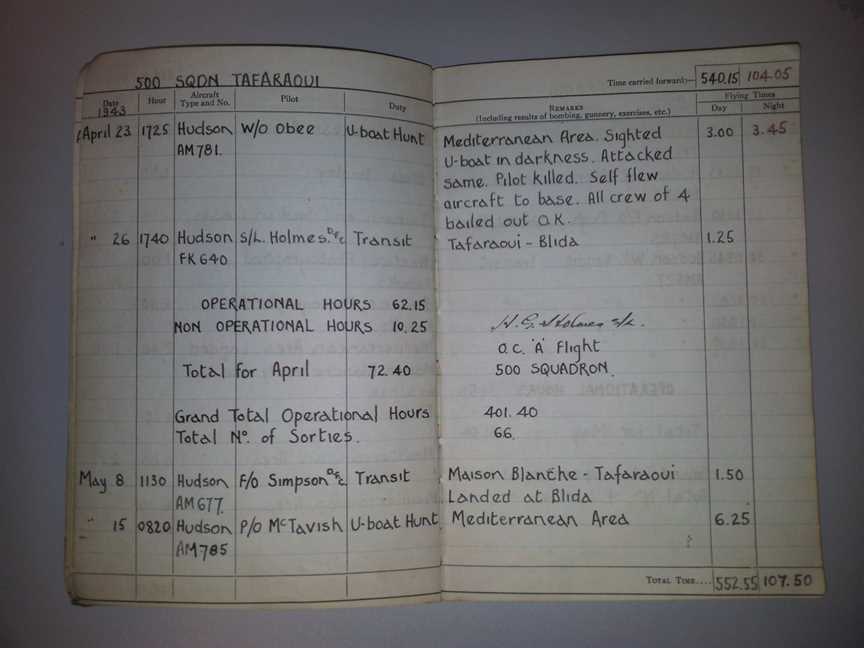 500 SQDN TAFARAOUI
Date Hour Aircraft Type and No. Pilot Duty
1943
April 23 1725 Hudson W/O Obee U-boat Hunt
AM781.
" 26 1740 Hudson S/L. Holmes. D.F.C. Transit
FK640
OPERATIONAL HOURS 62.15
NON OPERATIONAL HOURS 10.25
Total for April 72.40
Grand Total Operational Hours
Total No. of Sorties.
May 8 1130 Hudson F/O Simpson D.F.C. Transit
AM677.
" 15 0820 Hudson P/O McTavish U-boat Hunt
AM785
Time carried forward:— 540.15 104.05
REMARKS Flying Times
(Including results of bombing, gunnery, exercises, etc.) Day Night
Mediterranean Area. Sighted 3.00 3.45
U-boat in darkness. Attacked
same. Pilot killed. Self flew
aircraft to base. All crew of 4
bailed out O.K.
Tafaraoui - Blida 1.25
H. G. Holmes S/L.
O.C. 'A' Flight
500 SQUADRON.
401.40
66.
Maison Blanche - Tafaraoui 1.50
Landed at Blida
Mediterranean Area 6.25
TOTAL TIME.... 552.55 107.50